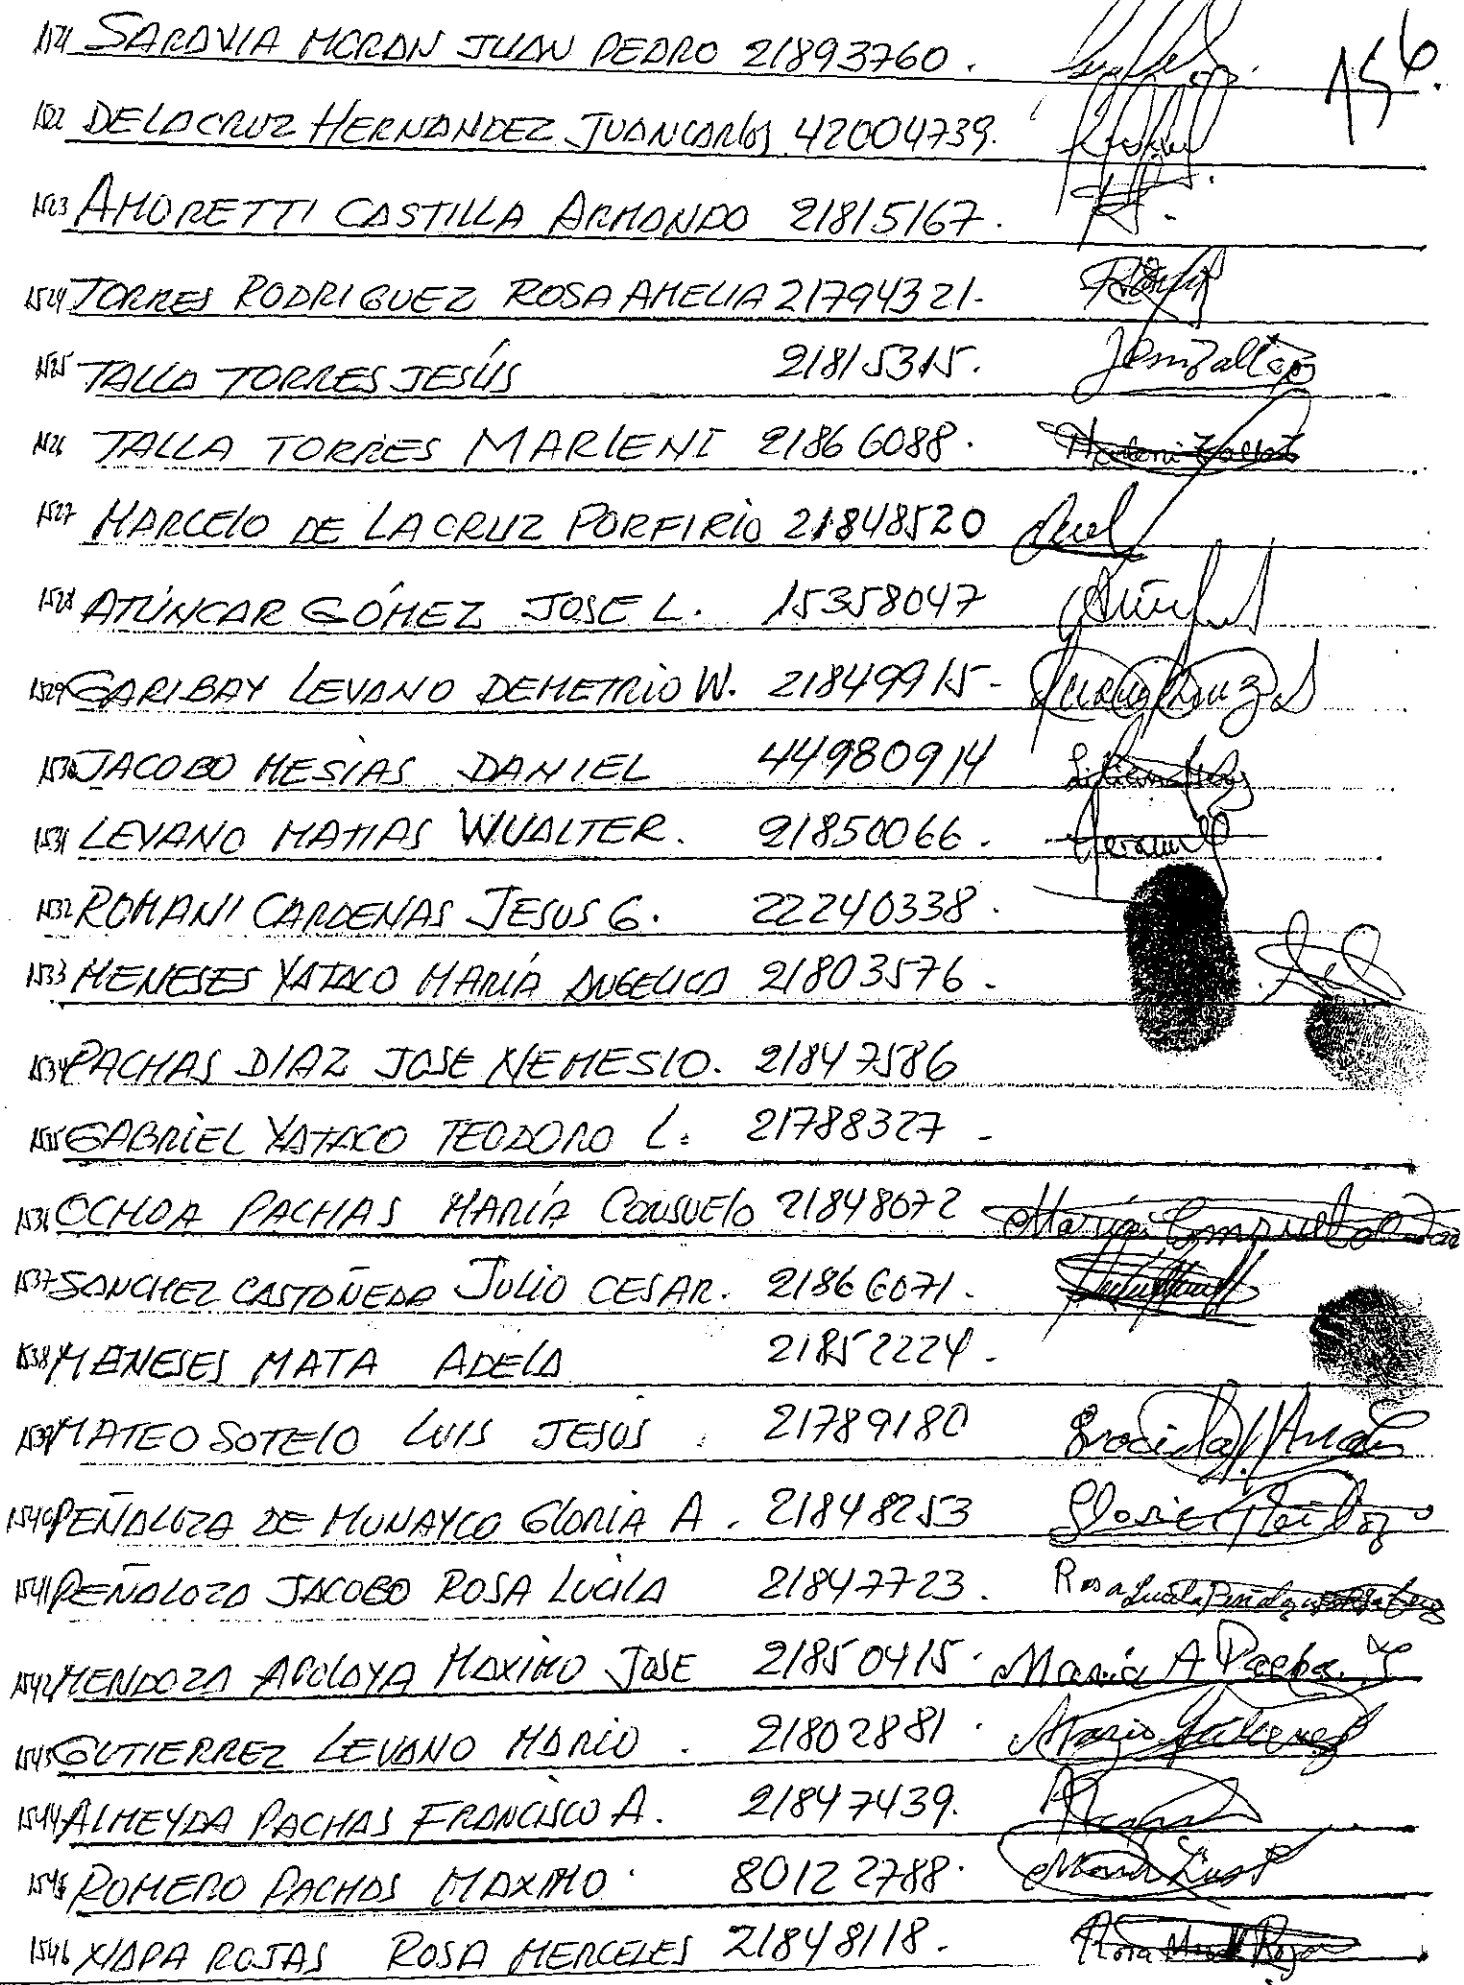 1521 SARAVIA MORAN JUAN PEDRO 21893760.
156.
1522 DELACRUZ HERNANDEZ JUANCARlos 42004739.
1523 AMORETTI CASTILLA ARMANDO 21815167.
1524 TORRES RODRIGUEZ ROSA AMELIA 21794321-
1525 TALLA TORRES JESÚS 21815315.
1526 TALLA TORRES MARLENI 21866088.
1527 MARCELO DE LA CRUZ PORFIRIO 21848520
1528 ATÚNCAR GÓMEZ JOSE L. 15358047
1529 GARIBAY LEVANO DEMETRIO W. 21849915-
1530 JACOBO MESIAS DANIEL 44980914
1531 LEVANO MATIAS WUALTER. 21850066.
1532 ROMANI CARDENAS JESUS G. 22240338.
1533 MENESES YATACO MARÍA ANGELICA 21803576.
1534 PACHAS DIAZ JOSE NEMESIO. 21847586
1535 GABRIEL YATACO TEODORO L. 21788327-
1536 OCHOA PACHAS MARÍA CONSUELO 21848072 María Consuelo
1537 SANCHEZ CASTAÑEDA JULIO CESAR. 21866071.
1538 MENESES MATA ADELA 21852224.
1539 MATEO SOTELO LUIS JESUS 21789180
1540 PEÑALOZA DE MUNAYCO GLORIA A. 21848253 Gloria
1541 PEÑALOZA JACOBO ROSA LUCILA 21847723. Rosa Lucila
1542 MENDOZA APOLAYA MAXIMO JOSE 21850415. María A
1543 GUTIERREZ LEVANO MARIO. 21802881. Mario Gutierrez
1544 ALMEYDA PACHAS FRANCISCO A. 21847439.
1545 ROMERO PACHAS MAXIMO. 80122788.
1546 XIAPA ROJAS ROSA MERCELES 21848118.